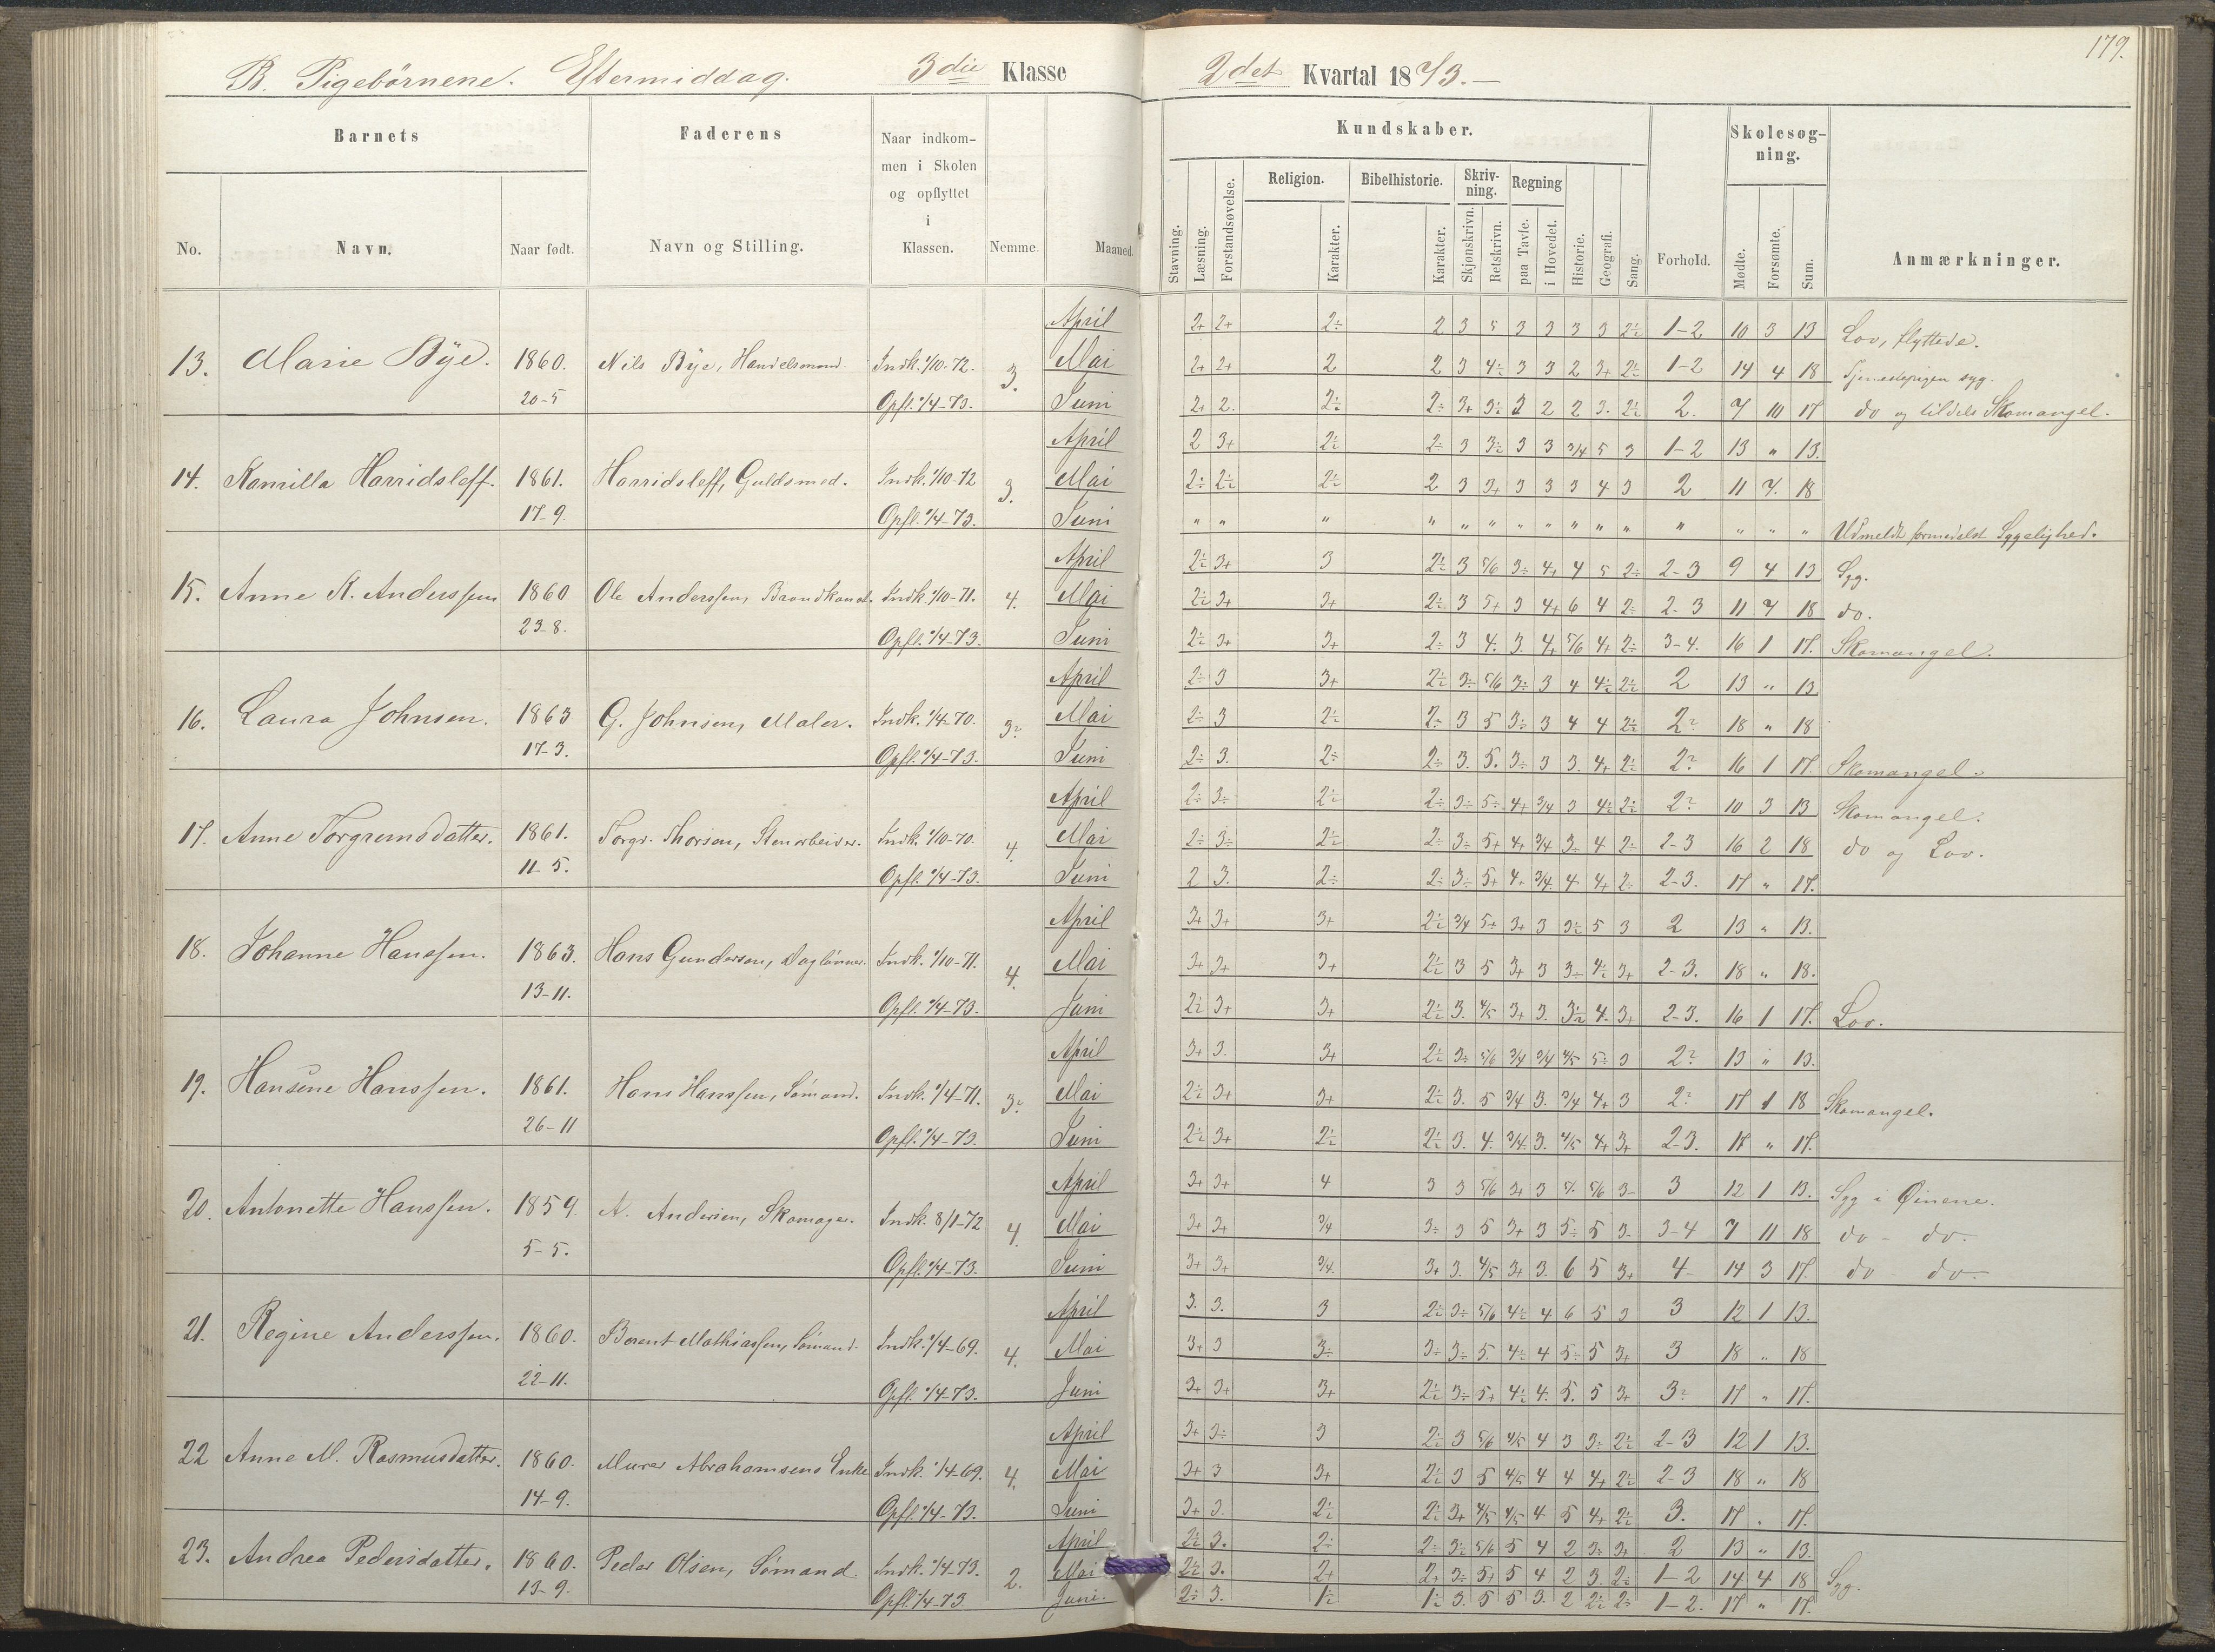 179.
B. Pigebörnene. Eftermiddag. 3die Klasse 2det Kvartal 1873.-
Barnets Faderens Naar indkommen i Skolen og opflyttet i Klassen. Nemme. Maaned.
No. Navn. Naar født. Navn og Stilling.
Kundskaber. Skolesøgning.
Religion. Bibelhistorie. Skrivning. Regning
Stavning. Læsning. Forstandsøvelse. Karakter. Karakter. Skjønskrivn. Retskrivn. paa Tavle. i Hovedet. Historie. Geografi. Sang. Forhold. Mødte. Forsømte. Sum. Anmærkninger.
April 2+ 2+ 2÷ 2 3 5 3 3 3 3 2÷ 1-2 10 3 13 Lov, flyttede.
13. Marie Bÿe. 1860. Nils Bÿe, Handelsmand. Indk. 1/10-72. 3. Mai 2+ 2+ 2 2 3 4÷ 3 3 2 3+ 2÷ 1-2 14 4 18 Tjenestepigen syg.
20-5 Opfl. 1/4-73. Juni 2+ 2. 2÷ 2÷ 3+ 3÷ 2 2 2 3. 2÷ 2. 7 10 17 do og tildels Skomangel.
April 2 3+ 2÷ 2÷ 3 3÷ 3 3 3/4 5 3 1-2 13 " 13.
14. Kamilla Harridsleff. 1861. Harridsleff, Guldsmed. Indk. 1/10-72 3. Mai 2÷ 2÷ 2÷ 2 3 3+ 3 3 3 4 3 2 11 7. 18
17-9. Opfl. 1/4-73. Juni " " " " " " " " " " " " " " " Udmeldt formedelst Sygelighed.
April 2÷ 3+ 3 2÷ 3 5/6 3÷ 4+ 4 5 2÷ 2-3 9 4 13 Syg.
15. Anne K. Anderssen 1860 Ole Anderssen, Brandkonst. Indk. 1/10-71. 4. Mai 2÷ 3+ 3+ 2÷ 3 5+ 3 4+ 6 4 2÷ 2-3 11 7 18 do.
23-8. Opfl. 1/4-73. Juni 2÷ 3+ 3+ 2÷ 3 4. 3. 4+ 5/6 4+ 2÷ 3-4. 16 1 17. Skomangel.
April 2÷ 3 3+ 2÷ 3÷ 5/6 3÷ 3 4 4÷ 2÷ 2 13 " 13.
16. Laura Johnsen. 1863 G. Johnsen, Maler. Indk. 1/4-70. 3? Mai 2÷ 3 2÷ 2÷ 3 5 3÷ 3 4 4 2÷ 2? 18 " 18
17-3. Opfl. 1/4-73. Juni 2÷ 3. 2÷ 2÷ 3. 5. 3÷ 3 3. 4+ 2÷ 2? 16 1 17. Skomangel.
April 2÷ 3÷ 2÷ 2÷ 3÷ 5÷ 4+ 3/4 3 4÷ 2÷ 2? 10 3 13 Skomangel.
17. Anne Torgrimsdatter. 1861. Torgr. Thorsen, Stenarbeider. Indk. 1/10-70. 4. Mai 2÷ 3÷ 2÷ 2÷ 3÷ 5+ 4+ 3/4 3÷ 4 2÷ 2-3 16 2 18 do og Lov.
11-5. Opfl. 1/4-73. Juni 2 3. 2÷ 2÷ 3÷ 5+ 4+ 3/4. 4 4+ 2÷ 2-3. 17 " 17.
April 3+ 3+ 3+ 2÷ 3/4 5+ 3+ 3 3÷ 5 3 2 13 " 13.
18. Johanne Hanssen. 1863. Hans Gundersen, Daglønner. Indk. 1/10-71. 4. Mai 3+ 3+ 3+ 2÷ 3 5 3+ 3 3÷ 4÷ 3+ 2-3. 18 " 18.
13-11. Opfl. 1/4-73. Juni 2÷ 3+ 3+ 2÷ 3. 4/5 3+ 3. 3÷ 4. 3+ 2-3. 16 1 17. Lov.
April 3+ 3. 3+ 2÷ 3÷ 5/6 3/4 3/4 4/5 5÷ 3 2? 13 " 13.
19. Hansine Hanssen. 1861. Hans Hanssen, Sømand. Indk. 1/4-71. 3? Mai 2÷ 3+ 3+ 2÷ 3. 5 3/4 3. 3/4 4+ 3 2? 17 1 18 Skomangel.
26-11 Opfl. 1/4-73. Juni 2÷ 3+ 2÷ 2÷ 3. 4. 3/4. 3. 4/5 4+ 3+ 2-3. 17 " 17.
April 3+ 3+ 4 3 3 5/6 3+ 3 5. 5/6 3- 3 12 1 13. Syg i Öinene.
20. Antonette Hanssen. 1859. A. Andersen, Skomager. Indk. 8/1-72 4. Mai 3+ 3+ 3/4 3÷ 3 5 3+ 3 5÷ 5 3- 3-4 7 11 18 do - do.
5-5. Opfl. 1/4-73. Juni 3+ 3+ 3/4. 3+ 3. 4/5 3+ 3. 6 5 3+ 4- 14 3 17. do do-
April 3. 3. 3 2÷ 3÷ 5/6 4÷ 4 6 5 3 3 12 1 13.
21. Regine Anderssen. 1860. Berent Mathiassen, Sømand. Indk. 1/4-69. 4. Mai 3+ 3 3÷ 3÷ 3÷ 5. 4÷ 4 5÷ 5 3+ 3 18 " 18
22-11. Opfl. 1/4-73. Juni 3+ 3+ 3+ 2÷ 3÷ 5+ 4÷ 4. 5. 5 3+ 3? 17 " 17.
April 3+ 3÷ 3 2÷ 3 5/6 4/5 4 3 3÷ 2÷ 2-3 12 1 13.
22 Anne M. Rasmusdatter. 1860. Murer Abrahamsens Enke Indk. 1/4-69. 4. Mai 3+ 3 3+ 2÷ 3 5 4/5 4 4 4+ 2÷ 2-3 18 " 18
14-9. Opfl. 1/4-73. Juni 3+ 3. 2÷ 2÷ 3+ 4/5 4/5 4 5 4+ 2÷ 3. 17 . 17.
April 2÷ 3. 2÷ 2÷ 3÷ 5/6 5 4 2 3÷ 3+ 2 13 " 13.
23. Andrea Pedersdatter. 1860. Peder Olsen, Sømand. Indk. 1/4-73. 2. Mai 2÷ 3. 2+ 2+ 3÷ 5+ 5 4 2 3. 2÷ 1-2 14 4 18 Syg.
13-9. Opfl. 1/4-73 Juni. 2÷ 3. 1÷ 1÷ 3. 5 5 3. 2 2÷ 2÷ 1-2. 17 " 17.